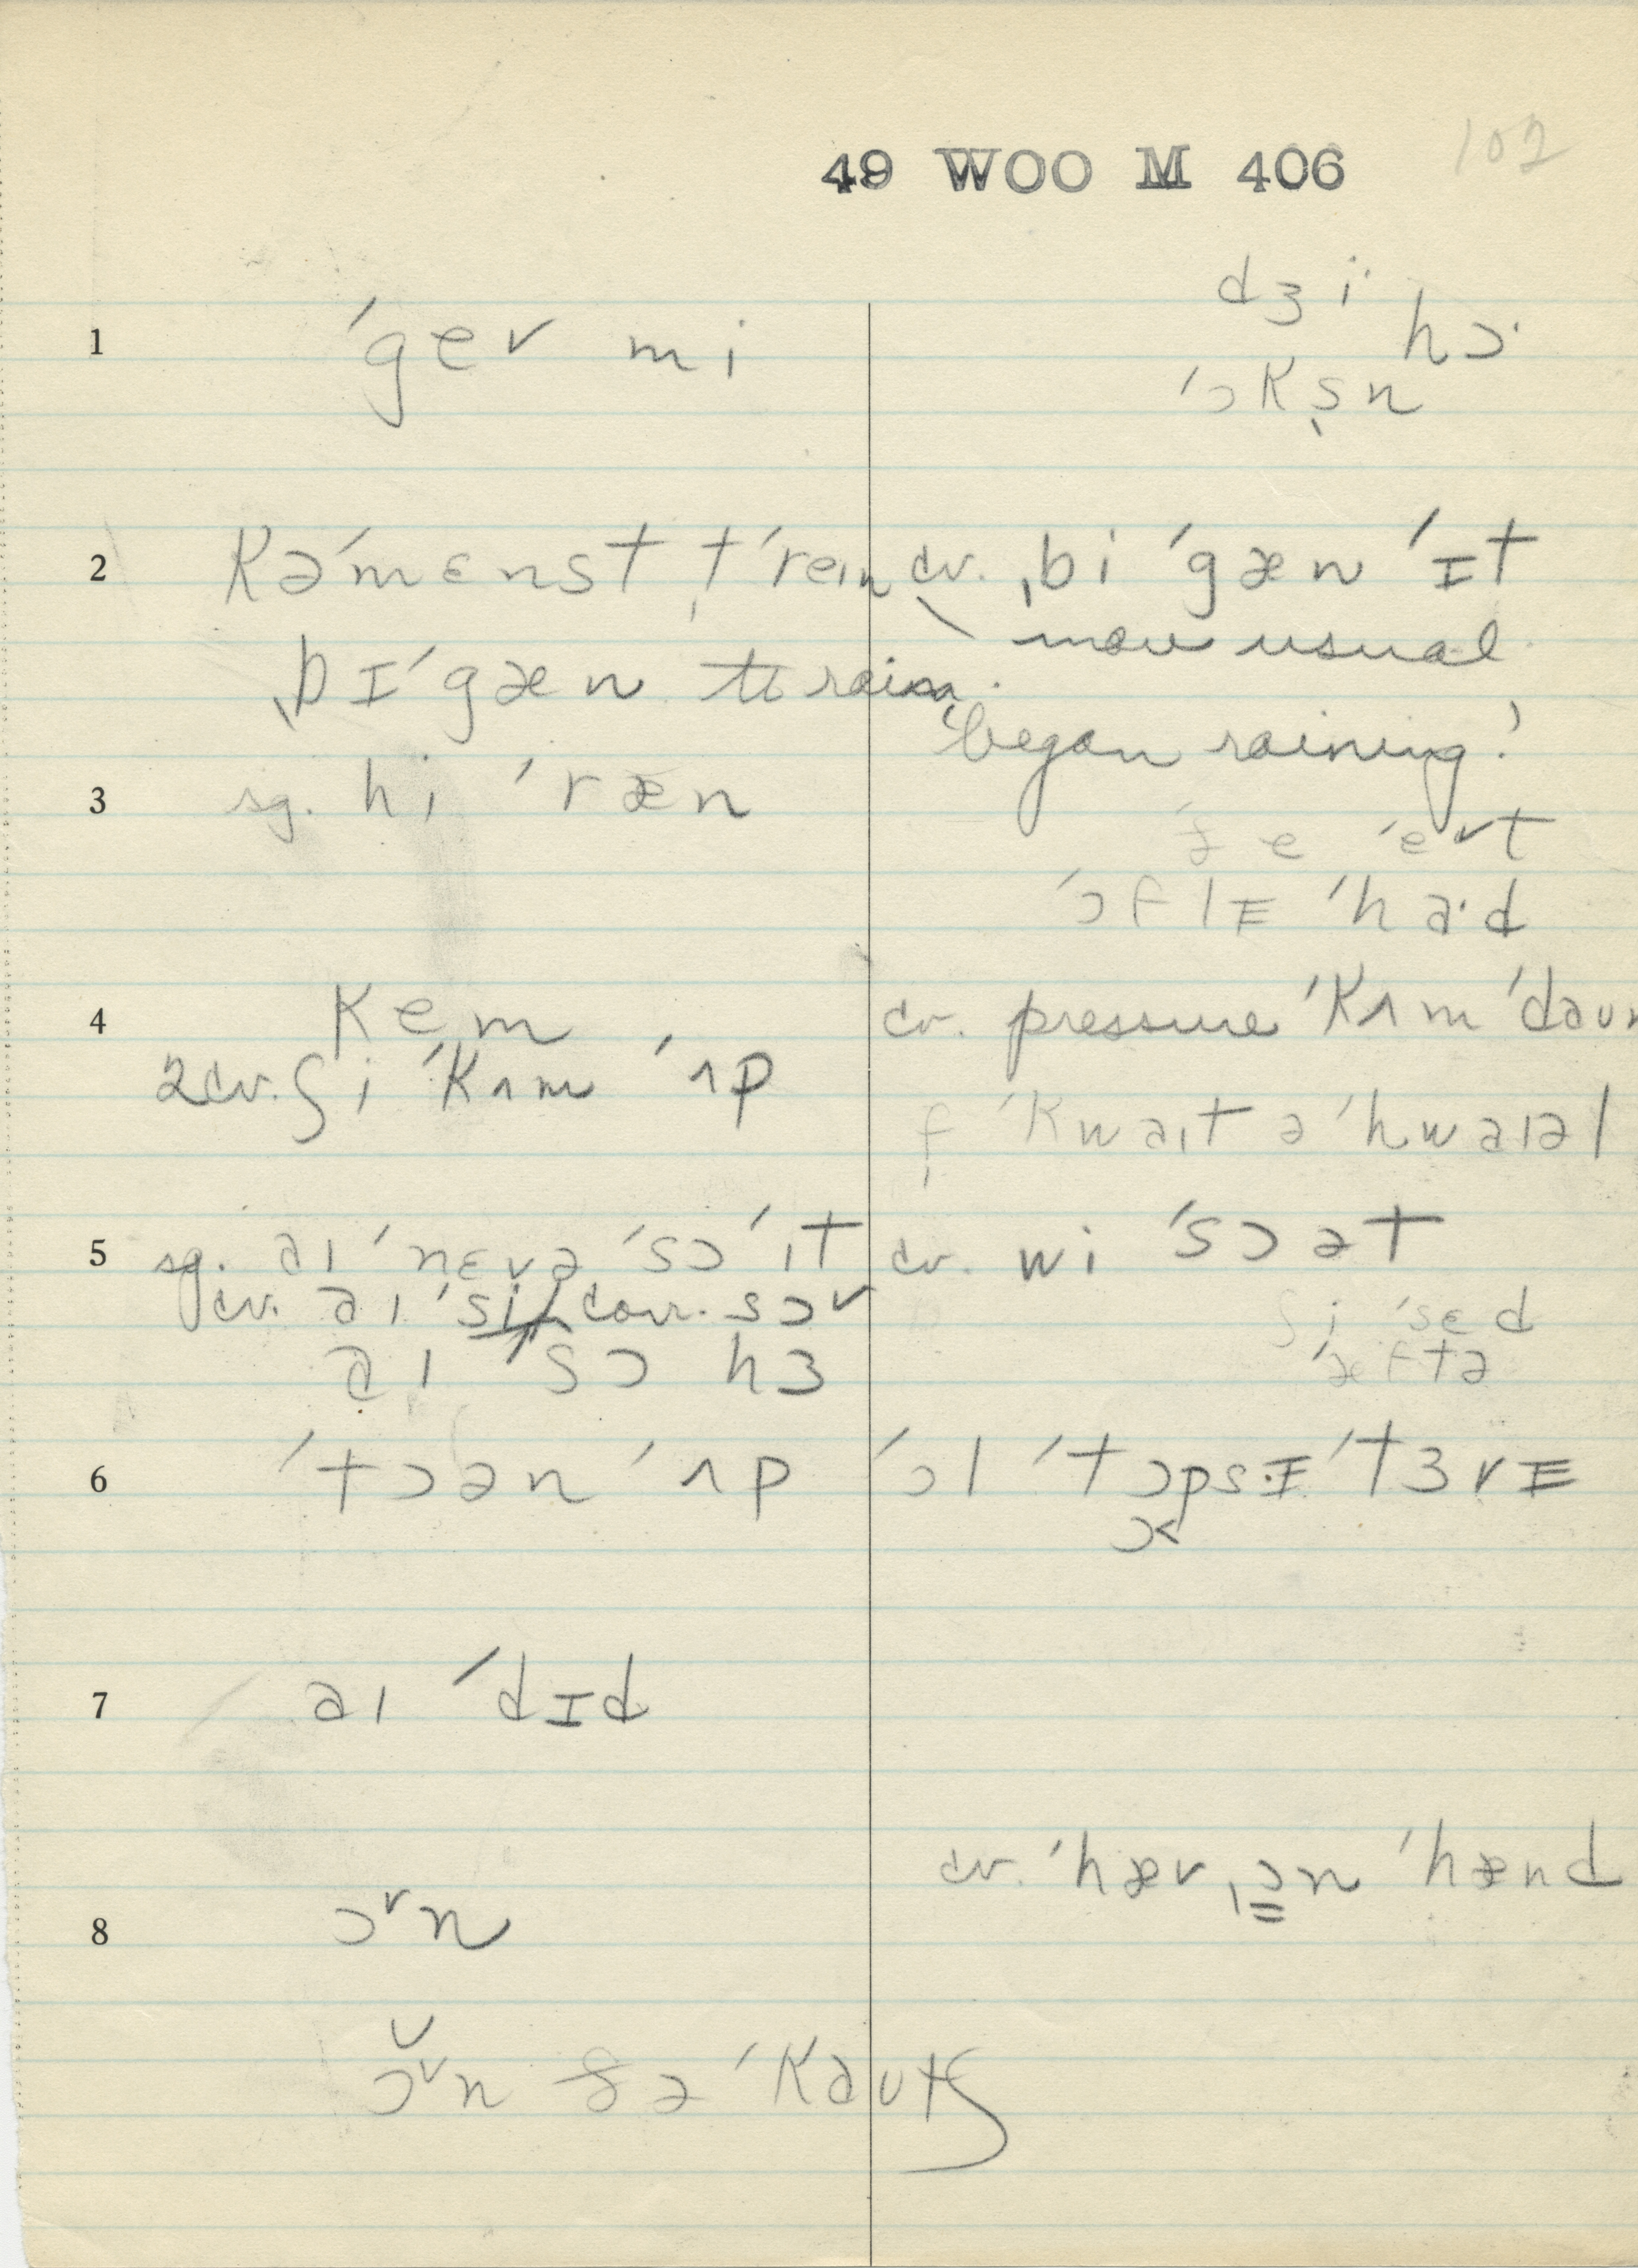 49 WOO M 406
102
1 ˈgev mi
dʒi hɔ·
ˈɔkṣn
2 kəˈmɛnst tˈreɪn cv. ˌbi ˈgæn ˈɪt
more usual
ˌbɪˈgæn to rain.
'began raining'
3 sg. hi ˈræn
e ˈevt
ˈɔflɪ ˈha·d
4 kem cv. pressure ˈkʌm ˈdaun
2cv. ʃi ˈkʌm ˈʌp
f ˈkwaɪt ə ˈhwaɪəl
5 sg. aɪ ˈnɛvə ˈsɔ ˈɪt cv. wi ˈsɔ ət
cv. aɪ ˈsi corr. sɔv
ʃi ˈsɛd
aɪ ˈsɔ hɜ
ˈæftə
6 ˈtɔən ˈʌp ˈɔl ˈtɔpsɪ ˈtɜvɪ
7 aɪ ˈdɪd
cv. ˈhæv ˌɔn ˈhænd
8 ɔᵛn
ɔᵛn ðə ˈkautʃ